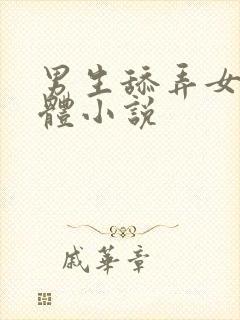 男生舔弄女
體小說
戚華章